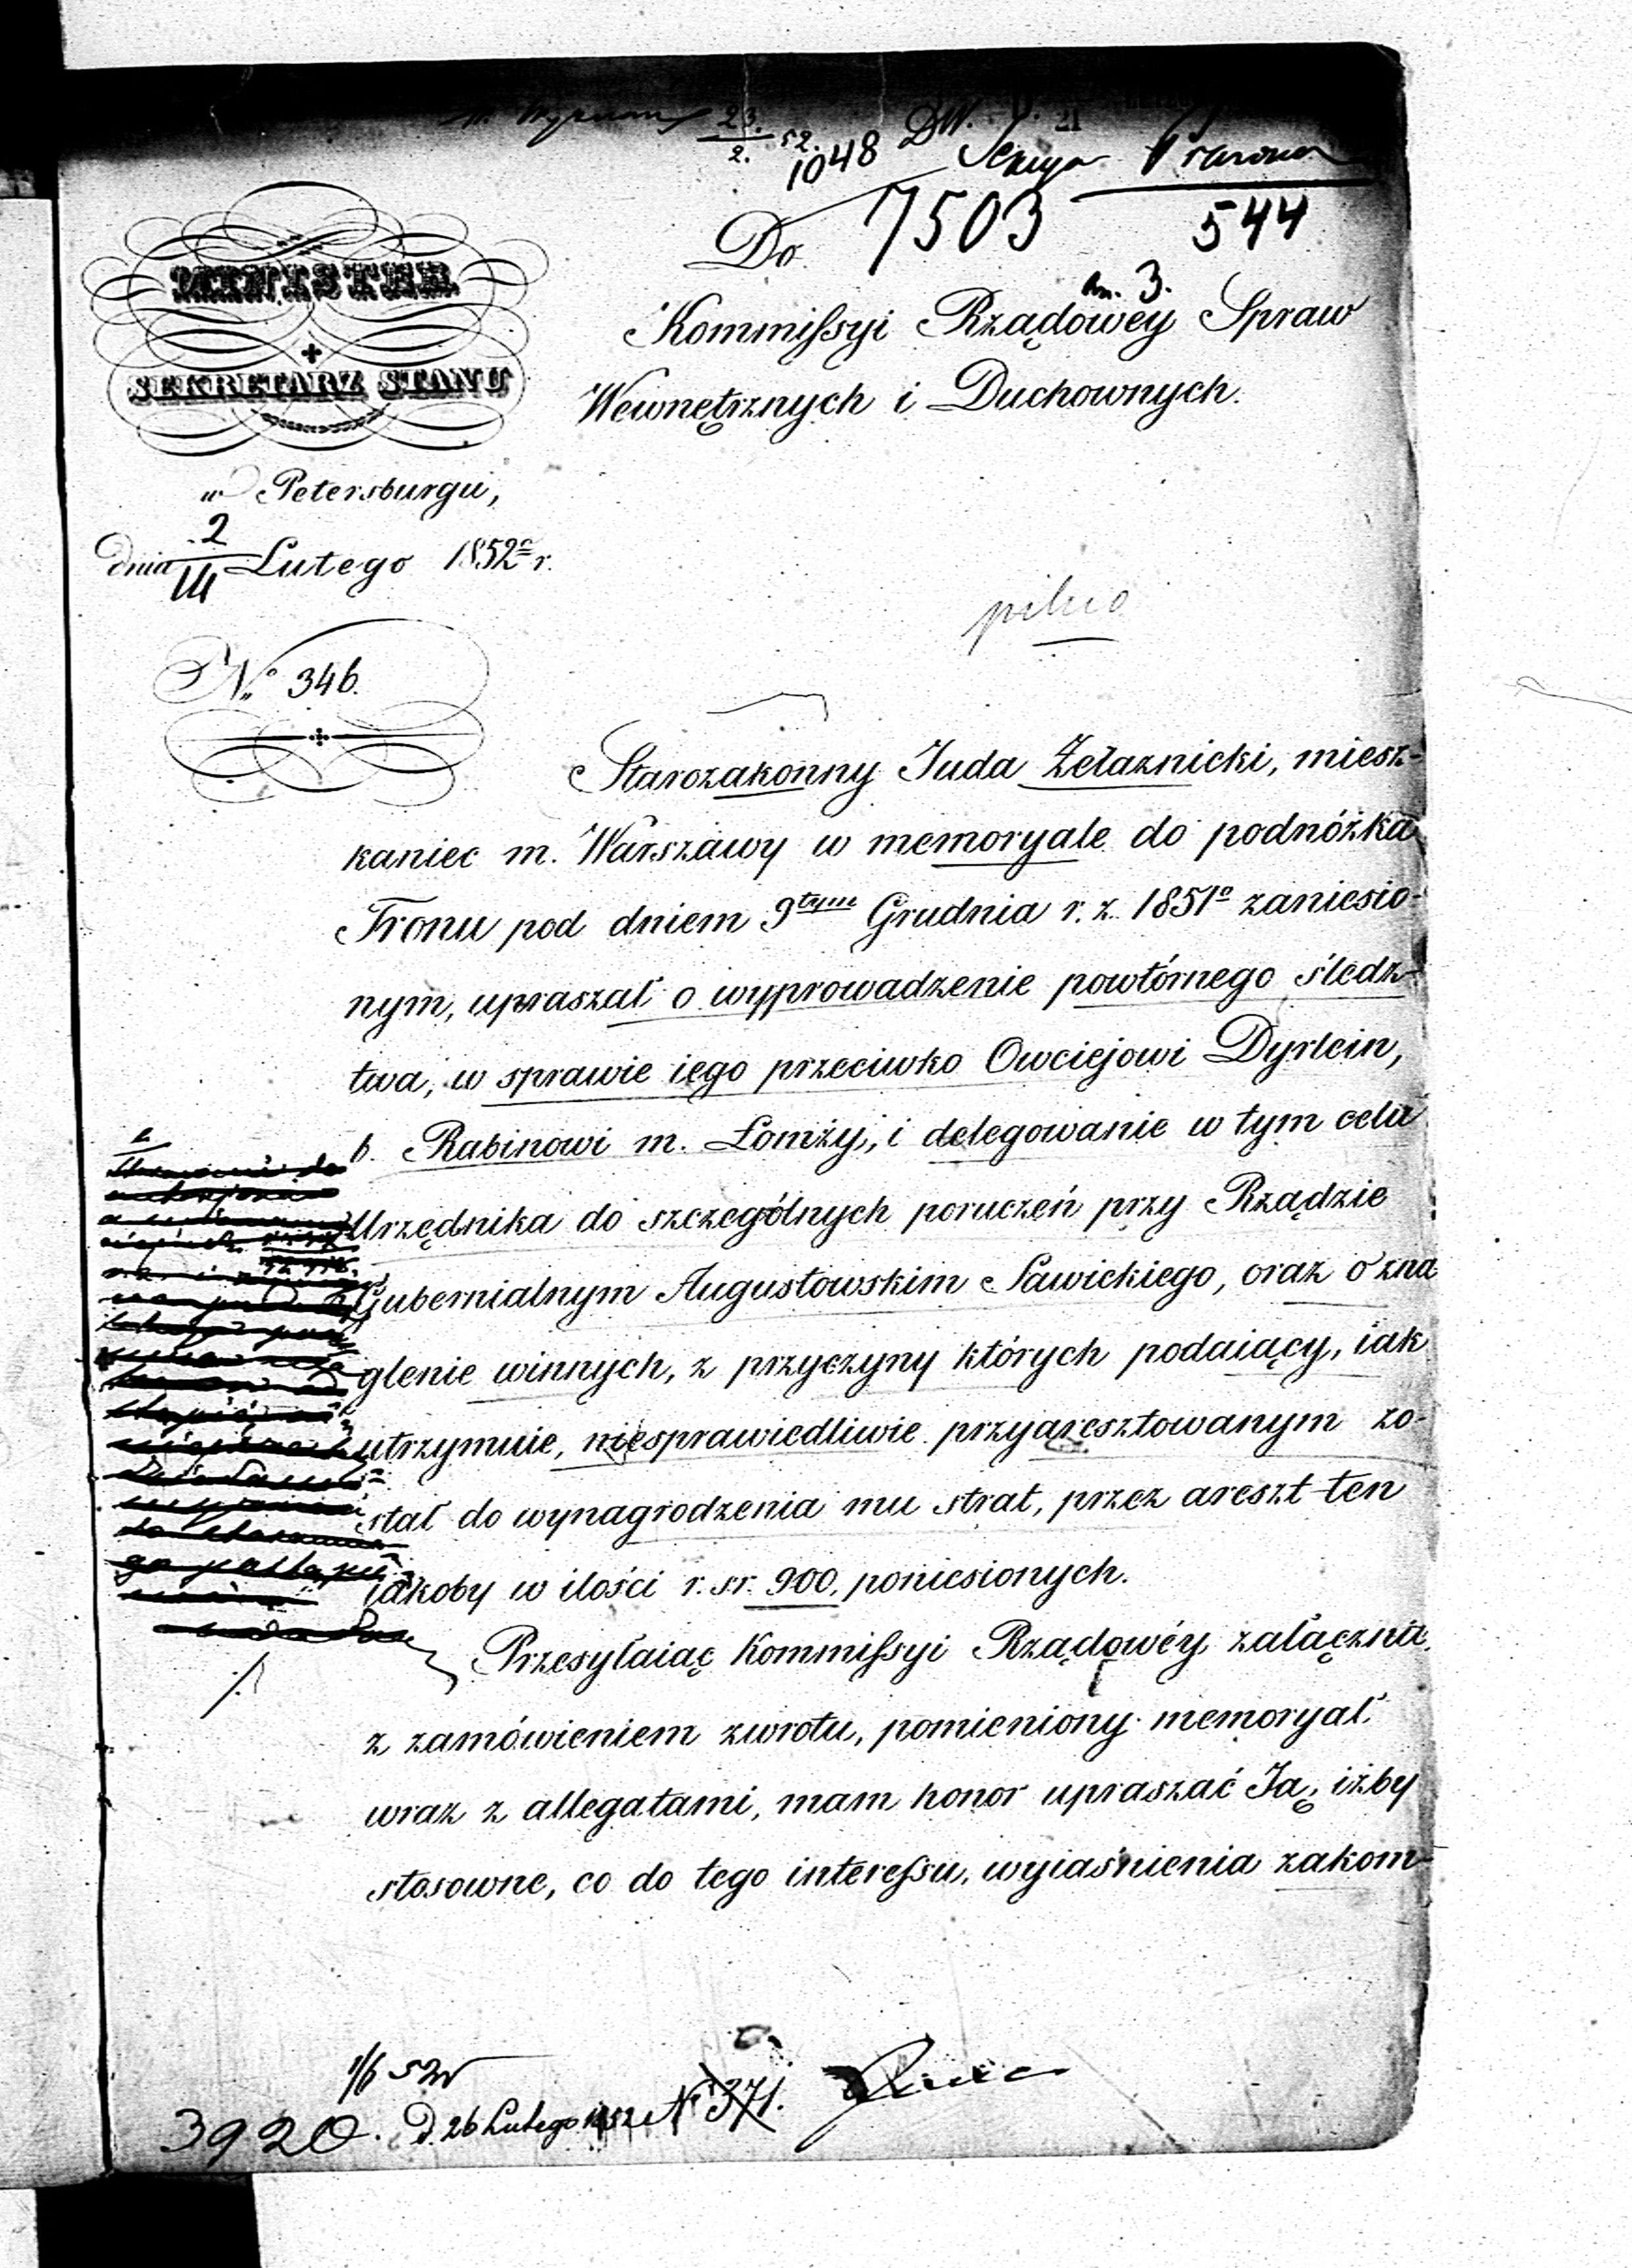 23./2. 52.
1048 DW.
21
7503
544
3.
MINISTER
SEKRETARZ STANU
w Petersburgu,
dnia 2/14 Lutego 1852º r.
Nº 346.
Do
Kommissyi Rządowey Spraw
Wewnętrznych i Duchownych.
pilno
Starozakonny Juda Żelaznicki, miesz-
kaniec m. Warszawy w memoryale do podnóżka
Tronu pod dniem 9tym Grudnia r. z. 1851º zaniesio-
nym, upraszał o wyprowadzenie powtórnego śledz-
twa, w sprawie iego przeciwko Owciejowi Dyrlein,
b. Rabinowi m. Łomży, i delegowanie w tym celu
Urzędnika do szczególnych poruczeń przy Rządzie
Gubernialnym Augustowskim Sawickiego, oraz o zna
glenie winnych, z przyczyny których podaiący, iak
utrzymuie, niesprawiedliwie przyaresztowanym zo-
stał do wynagrodzenia mu strat, przez areszt ten
iakoby w ilości r. sr. 900, poniesionych.
Przesyłaiąc Kommissyi Rządowéy załącznie,
z zamówieniem zwrotu, pomieniony memoryał
wraz z allegatami, mam honor upraszać Ją, iżby
stosowne, co do tego interessu, wyiaśnienia zakom-
3920. D. 26 Lutego 1852 N 371.